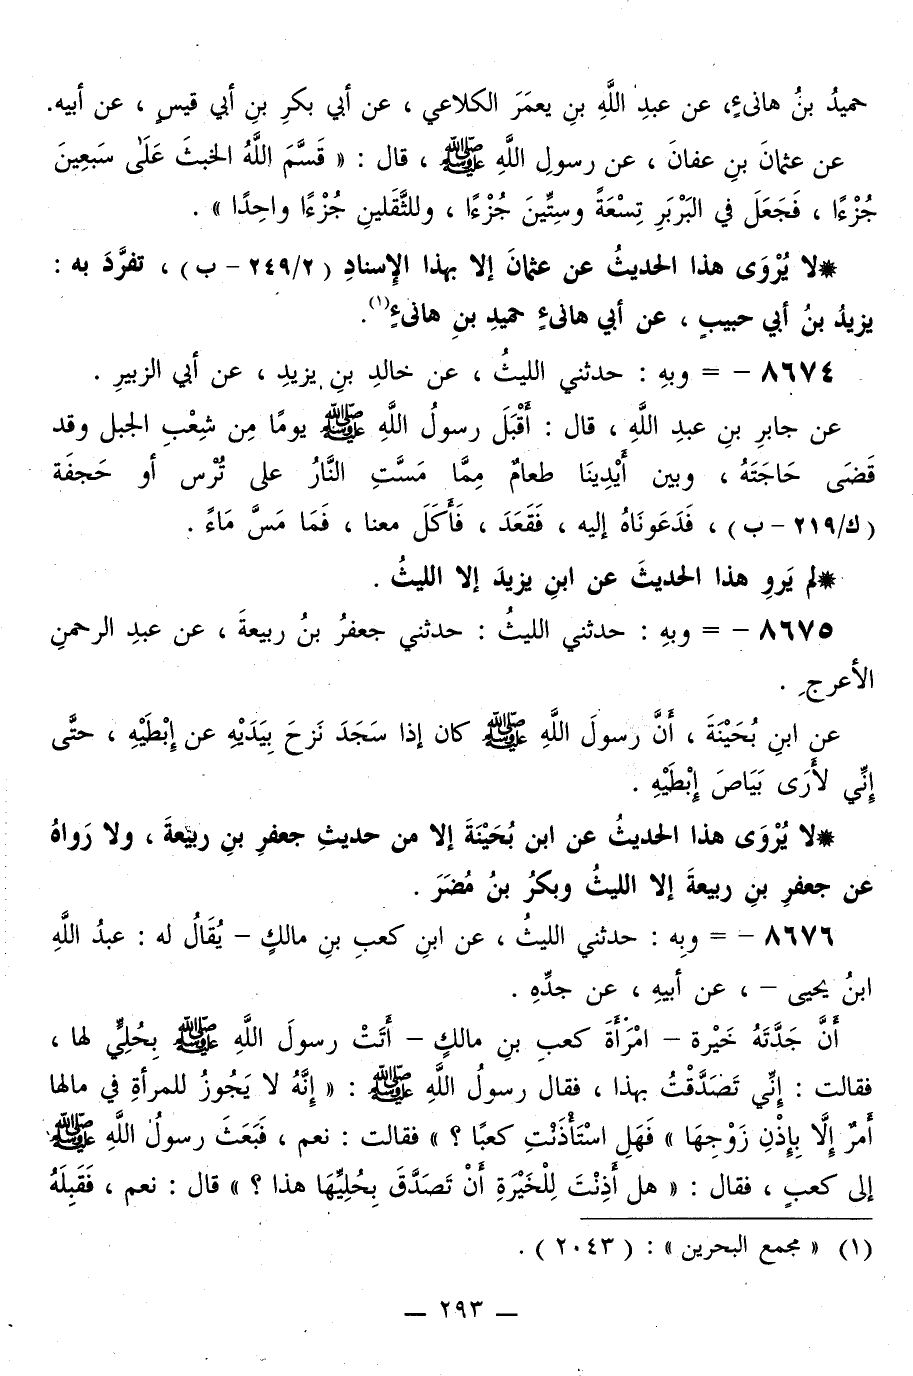 حميدُ بنُ هانىءٍ، عن عبدِ اللَّهِ بنِ يعمَرَ الكلاعي ، عن أبي بكرِ بنِ أبي قيسٍ ، عن أبيه.
عن عثمانَ بنِ عفانَ ، عن رسولِ اللَّهِ ﷺ ، قال : « قَسَّمَ اللَّهُ الخبثَ عَلَى سَبعِينَ
جُزْءًا ، فَجَعَلَ في البَرْبَرِ تِسْعَةً وسِتِّينَ جُزْءًا ، وللثَّقَلينِ جُزْءًا واحِدًا » .
*لا يُرْوَى هذا الحديثُ عن عثمانَ إلا بهذا الإسنادِ ( ٢/٢٤٩ - ب ) ، تفرَّدَ به :
يزيدُ بنُ أبي حبيبٍ ، عن أبي هانىءٍ حميدِ بنِ هانىءٍ(١).
٨٦٧٤ - = وبهِ : حدثني الليثُ ، عن خالدِ بنِ يزيدِ ، عن أبي الزبيرِ .
عن جابرِ بنِ عبدِ اللَّهِ ، قال : أَقْبَلَ رسولُ اللَّهِ ﷺ يومًا مِن شِعْبِ الجبل وقد
قَضَى حَاجَتَهُ ، وبين أَيْدِينَا طعامٌ مِمَّا مَسَّتِ النَّارُ على تُرْس أو حَجفَة
( ك/٢١٩ - ب ) ، فَدَعَونَاهُ إليه ، فَقَعَدَ ، فَأَكَلَ معنا ، فَمَا مَسَّ مَاءً .
*لم يَروِ هذا الحديثَ عن ابنِ يزيدَ إلا الليثُ .
٨٦٧٥ - = وبهِ : حدثني الليثُ : حدثني جعفرُ بنُ ربيعةَ ، عن عبدِ الرحمنِ
الأعرجِ .
عن ابنِ بُحَيْنَةَ ، أَنَّ رسولَ اللَّهِ ﷺ كان إذا سَجَدَ نَزحَ بِيَدَيْهِ عن إِبْطَيْهِ ، حتَّى
إِنِّي لأَرَى بَيَاضَ إِبْطَيْهِ .
*لا يُرْوَى هذا الحديثُ عن ابن بُحَيْنَةَ إلا من حديثِ جعفرِ بنِ ربيعةَ ، ولا رَواهُ
عن جعفرِ بنِ ربيعةَ إلا الليثُ وبكرُ بنُ مُضَرَ .
٨٦٧٦ - = وبِه : حدثني الليثُ ، عن ابنِ كعبِ بنِ مالكٍ - يُقَالُ له : عبدُ اللَّهِ
ابنُ يحيى - ، عن أبيهِ ، عن جدِّهِ .
أَنَّ جَدَّتَهُ خَيْرة - امْرَأَةَ كعبِ بنِ مالكٍ - أَتَتْ رسولَ اللَّهِ ﷺ بِحُلِيٍّ لها ،
فقالت : إِنِّي تَصَدَّقْتُ بهذا ، فقال رسولُ اللَّهِ ﷺ : « إِنَّهُ لا يَجُوزُ للمرأةِ في مالها
أَمرٌ إِلَّا بِإِذْنِ زَوْجِهَا » فَهَلِ اسْتَأْذَنْتِ كعبًا ؟ » فقالت : نعم ، فَبَعَثَ رسولُ اللَّهِ ﷺ
إلى كعبٍ ، فقال : « هل أَذِنْتَ لِلْخَيْرَةِ أَنْ تَصَدَّقَ بِحُلِيِّهَا هذا ؟ » قال : نعم ، فَقَبِلَهُ
(١) « مجمع البحرين » : ( ٢٠٤٣ ) .
— ٢٩٣ —